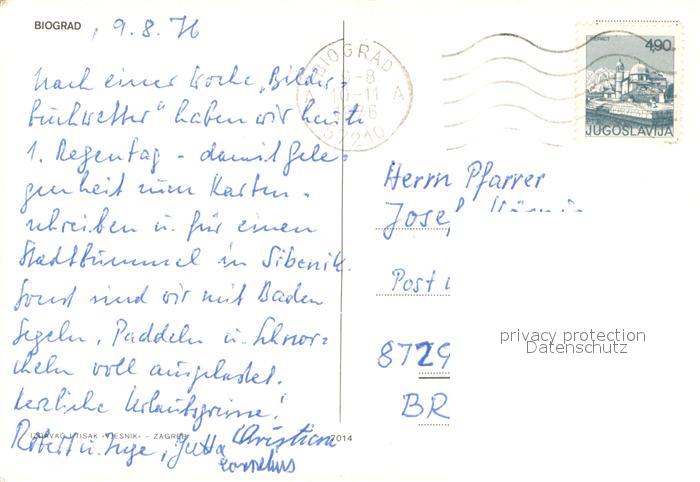 BIOGRAD , 9.8.76
Nach einer Woche „Bilder-
buchwetter" haben wir heute
1. Regentag - damit Gele-
genheit zum Karten-
schreiben u. für einen
Stadtbummel in Sibenik.
Sonst sind wir mit Baden
Segeln, Paddeln u. Schnor-
cheln voll ausgelastet.
Herzliche Urlaubsgrüsse!
Robert u. Inge, Jutta Christian
Cornelius
IZDAVAČ I TISAK »VJESNIK« – ZAGREB
7014
BIOGRAD
9-8
A 10-11 A
76
57210
4,90
JUGOSLAVIJA
Herrn Pfarrer
Josef
Post
8729
BR
privacy protection
Datenschutz